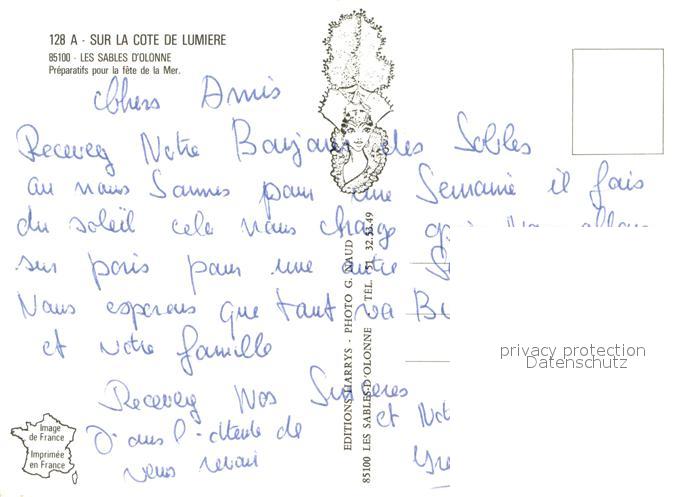 128 A - SUR LA COTE DE LUMIERE
85100 - LES SABLES D'OLONNE
Préparatifs pour la fête de la Mer.
Chers Amis
Recevez Notre Bonjour des Sables
ou nous Sommes pour une Semaine il fais
du soleil cela nous change
sur paris pour une autre
Nous esperons que tout va
et votre famille
Recevez Nos Sinceres
et Not
D'ans l'attente de
vous revoir
EDITIONS HARRYS - PHOTO G. NAUD
85100 LES SABLES-D'OLONNE TÉL. 51 32.53.49
Image
de France
Imprimée
en France
privacy protection
Datenschutz